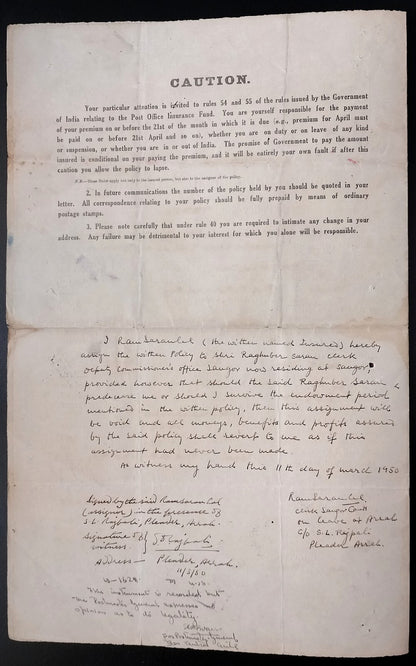 CAUTION.
Your particular attention is invited to rules 54 and 55 of the rules issued by the Government
of India relating to the Post Office Insurance Fund. You are yourself responsible for the payment
of your premium on or before the 21st of the month in which it is due (e.g., premium for April must
be paid on or before 21st April and so on), whether you are on duty or on leave of any kind
or suspension, or whether you are in or out of India. The promise of Government to pay the amount
insured is conditional on your paying the premium, and it will be entirely your own fault if after this
caution you allow the policy to lapse.
N.B.—These Rules apply not only to the insured person, but also to the assignee of the policy.
2. In future communications the number of the policy held by you should be quoted in your
letter. All correspondence relating to your policy should be fully prepaid by means of ordinary
postage stamps.
3. Please note carefully that under rule 40 you are required to intimate any change in your
address. Any failure may be detrimental to your interest for which you alone will be responsible.
I Ram Saran Lal (the within named Insured) hereby
assign the within Policy to Shri Raghuber Saran clerk
Deputy Commissioner's office Saugor now residing at Saugor,
provided however that should the said Raghuber Saran
predecease me or should I survive the endowment period
mentioned in the within policy, then this assignment will
be void and all moneys, benefits and profits assured
by the said policy shall revert to me as if this
assignment had never been made.
As witness my hand this 11th day of march 1950
Signed by the said Ram Saran Lal
(assignor) in the presence of
S. L. Rajpali, Pleader, Arrah.
Signature of
witness
Address — Pleader, Arrah.
11/3/50
Ram Saran Lal
clerk Saugor
on leave at Arrah
C/o S. L. Rajpali
Pleader Arrah.
This instrument is recorded but
the Postmaster General expresses no
opinion as to its legality.
for Postmaster General